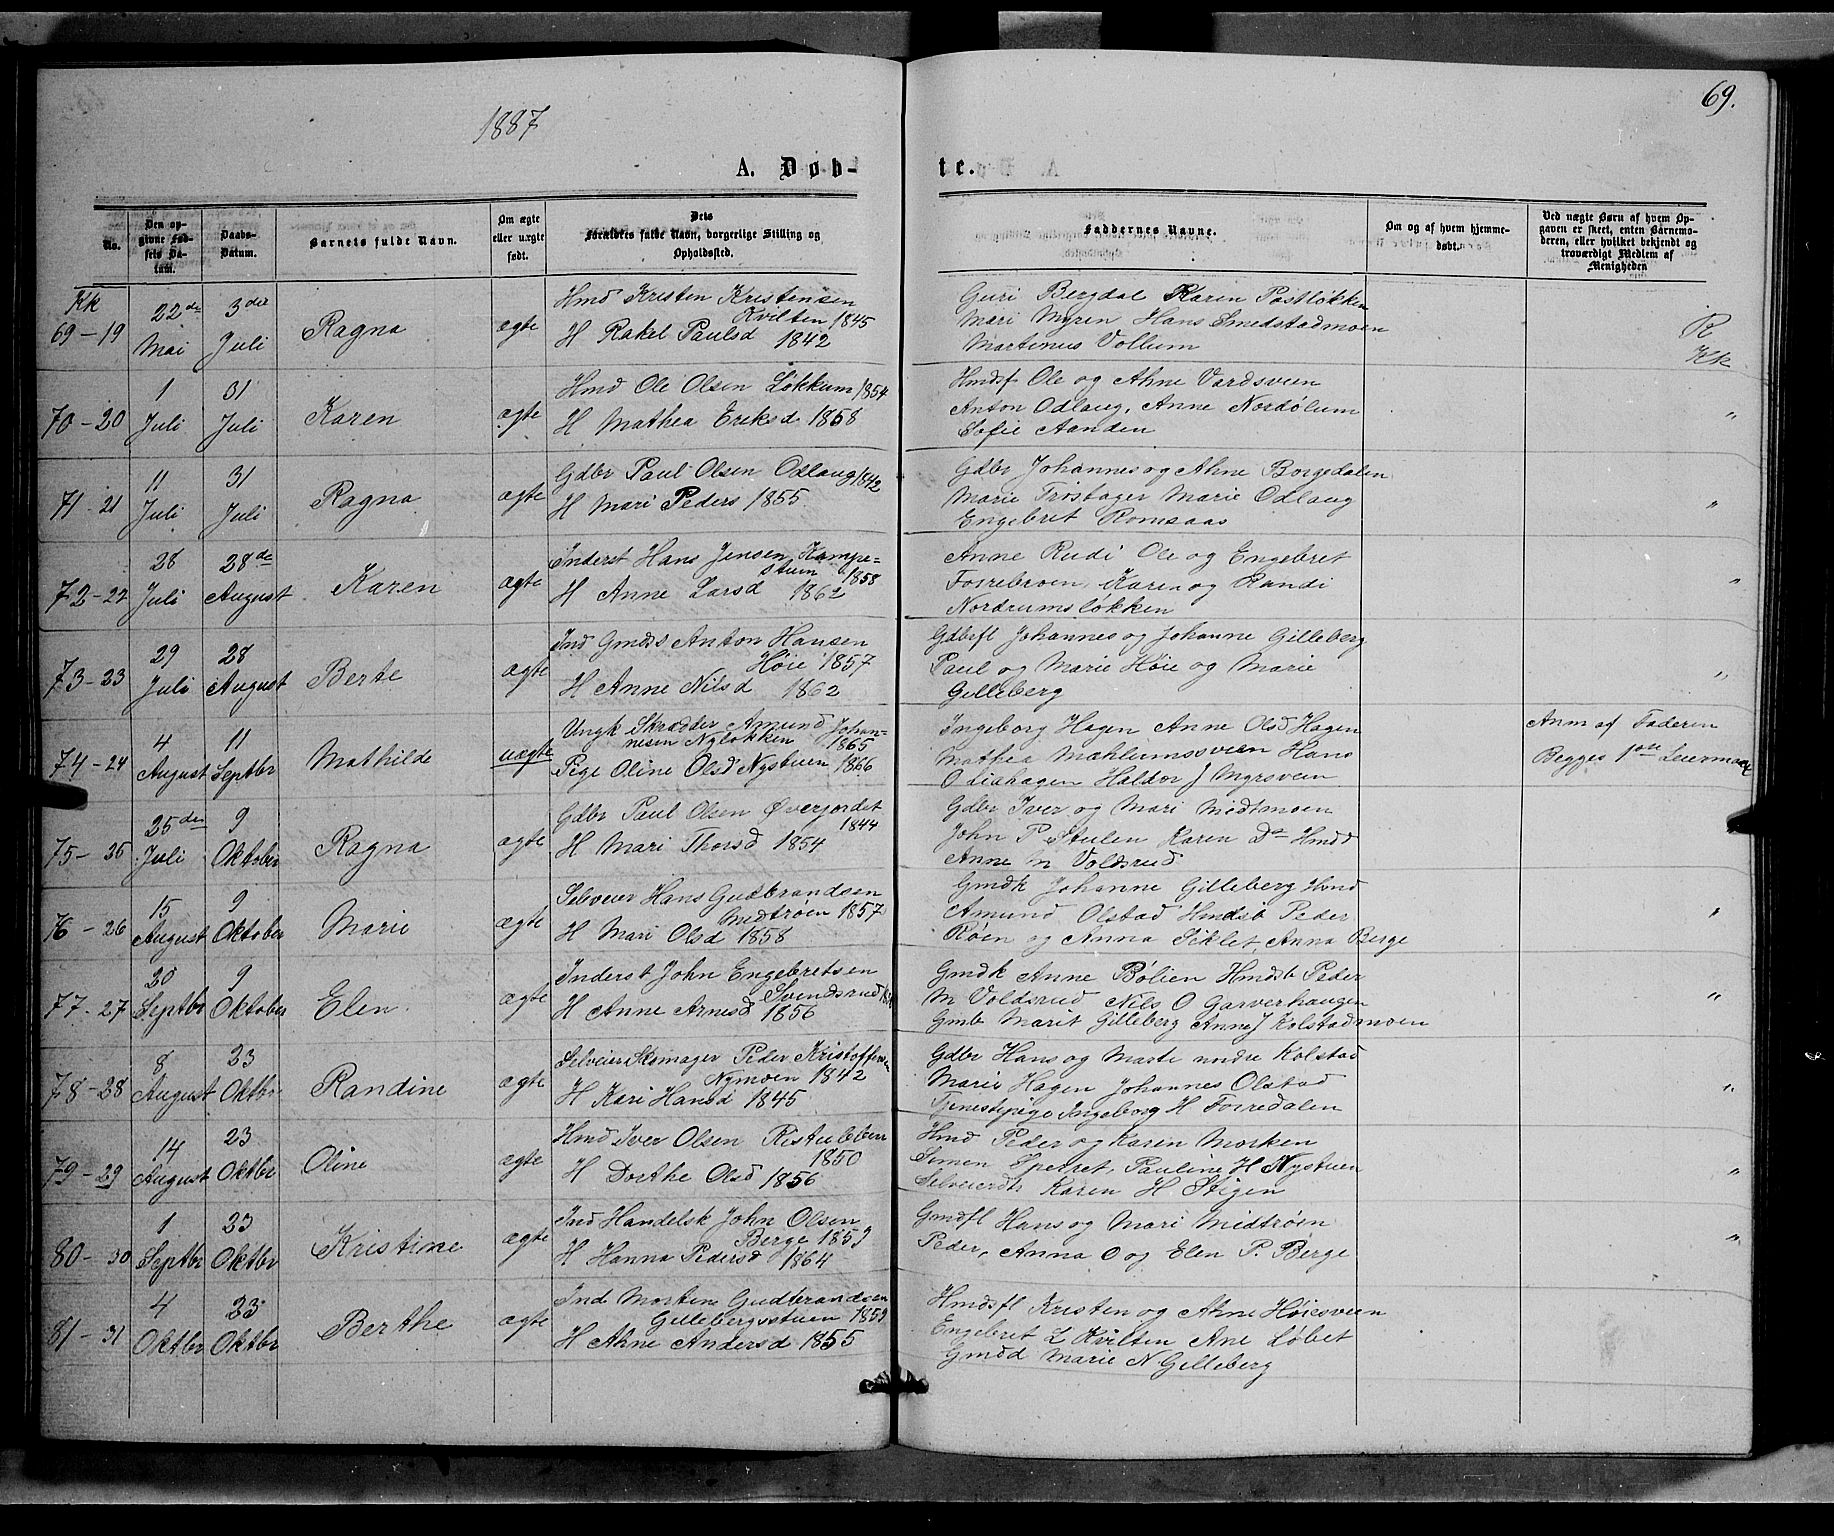 1887
69.
A. Døb-
te.
No.
Den op-
givne Fød-
sels Da-
tum.
Daabs-
Datum.
Barnets fulde Navn.
Om ægte
eller uægte
født.
Dets
Forældres fulde Navn, borgerlige Stilling og
Opholdssted.
Faddernes Navne.
Om og af hvem hjemme-
døbt.
Ved uægte Børn af hvem Op-
gaven er skeet, enten Barnemo-
deren, eller hvilket bekjendt og
troværdigt Medlem af
Menigheden
Kk
69-19
22de
Mai
3die
Juli
Ragna
ægte
Hmd Kristen Kristensen
Kvilten 1845
H Rakel Paulsd 1842
Guri Bergdal Karen Pastløkken
Mari Myren Hans Smedstadmoen
Martinus Vollum
R
Kk
70-20
1
Juli
31
Juli
Karen
ægte
Hmd Ole Olsen Løkkum 1854
H Mathea Eriksd 1858
Hmdsf Ole og Ahne Vardsveen
Anton Odlaug, Anne Nordølum
Sofie Aanden
"
71-21
11
Juli
31
Juli
Ragna
ægte
Gdbr Paul Olsen Odlaug 1842
H Mari Peders 1855
Gdbr Johannes og Ahne Borgedalen
Marie Trøstager Marie Odlaug
Engebret Romsaas
"
72-22
28
Juli
28de
August
Karen
ægte
Inderst Hans Jensen Kampe-
stuen 1858
H Anne Larsd 1862
Anne Rudi Ole og Engebret
Forrebroen, Karen og Randi
Nordrumsløkken
"
73-23
29
Juli
28
August
Berte
ægte
Ind Gmds Anton Hansen
Høie 1857
H Anne Nilsd 1862
Gdbrfl Johannes og Johanne Gilleberg
Paul og Marie Høie og Marie
Gilleberg
"
74-24
4
August
11
Septbr
Mathilde
uægte
Ungk Skrædder Amund Johan-
nesen Nyløkken 1865
Pige Oline Olsd Nystuen 1866
Ingeborg Hagen Anne Olsd Hagen
Mathea Mæhlumssveen Hans
Odiahagen Haldor J Myrsveen
Anm af Faderen
Begges 1ste Leiermaal
75-25
25de
Juli
9
Oktober
Ragna
ægte
Gdbr Paul Olsen Øverjordet
1844
H Mari Thorsd 1854
Gdbr Iver og Mari Midtmoen
John P Stulen Karen Do Hmdd
Anne M Voldsrud
76-26
15
August
9
Oktober
Marie
ægte
Selveier Hans Gudbrandsen
Midtrøen 1857
H Mari Olsd 1858
Gmdk Johanne Gilleberg Hmd
Amund Olstad Hmdsb Peder
Røen og Anna Siklet, Anna Berge
"
77-27
20
Septbr
9
Oktober
Elen
ægte
Inderst John Engebretsen
Svendsrud
H Anne Arnesd 1856
Gmdk Anne Bølien Hmdsb Peder
M Voldsrud Nils O Garverhaugen
Gmb Marit Gilleberg Anne J Kolstadmoen
"
78-28
8
August
23
Oktbr
Randine
ægte
Selveier Skomager Peder Kristoffersen
Nymoen 1842
H Kari Hansd 1845
Gdbr Hans og Marte nodre Kolstad
Marie Hagen Johannes Olstad
Tjenestepige Ingeborg H Forredalen
"
79-29
14
August
23
Oktbr
Oline
ægte
Hmd Iver Olsen Ristuleben
1850
H Dorthe Olsd 1856
Hmd Peder og Karen Morken
Simen Sperret, Pauline H Nystuen
Selveierdtr Karen H Stigen
"
80-30
1
Septbr
23
Oktbr
Kristine
ægte
Ind Handelsk John Olsen
Berge 1859
H Hanna Pedersd 1864
Gmdfl Hans og Mari Midtrøen
Peder, Anna O og Elen P. Berge
"
81-31
4
Oktbr
23
Oktbr
Berthe
ægte
Ind Morten Gudbrandsen
Gillebergsstuen 1859
H Ahne Andersd 1855
Hmdsfl Kristen og Ahne Høiesveen
Engebret L Kvilten Ane Løbet
Gmdd Marie N Gilleberg